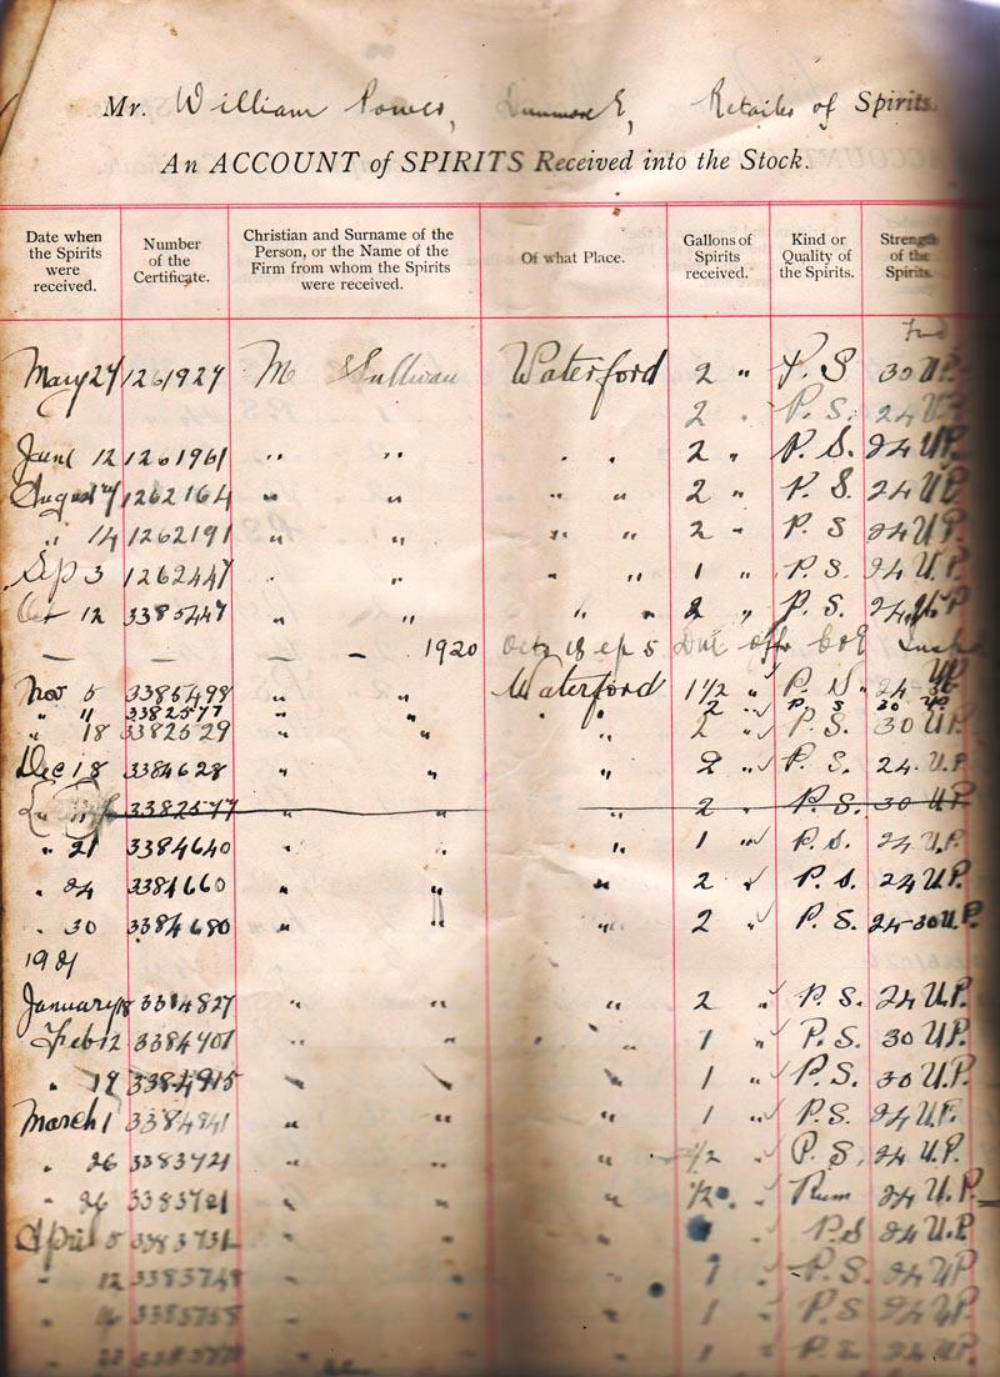 Mr. William Power, Dunmore E, Retailer of Spirits.
An ACCOUNT of SPIRITS Received into the Stock.
Date when the Spirits were received. Number of the Certificate. Christian and Surname of the Person, or the Name of the Firm from whom the Spirits were received. Of what Place. Gallons of Spirits received. Kind or Quality of the Spirits. Strength of the Spirits.
May 24 1261924 M Sullivan Waterford 2 " P. S 30 U.P.
2 " P. S. 24 U.P.
June 12 1261961 " " " " 2 " P. S. 24 U.P.
August 4 1262164 " " " " 2 " P. S. 24 U.P.
" 14 1262191 " " " " 2 " P. S 24 U.P.
Sep 3 1262447 " " " " 1 " P. S. 24 U.P.
Oct 12 3385447 " " " " 2 " P. S. 24 U.P
— — — — 1920 Oct 18 Off
Nov 5 3385498 " " Waterford 1 1/2 " P. 24
" 11 3382577 " " " 2 " P. S 30 U.P.
" 18 3382629 " " " 2 " P. S. 30 U.P.
Dec 18 3384628 " " " 2 " P. S. 24. U.P.
" 3382577 " " " 2 " P. S. 30 U.P
" 21 3384640 " " " 1 " P. S. 24 U.P.
" 24 3384660 " " " 2 " P. S. 24 U.P.
" 30 3384680 " " " 2 " P. S. 24-30 U.P.
1921
January 18 3384827 " " " 2 " P. S. 24 U.P.
Feb 12 3384401 " " " " 1 " P. S. 30 U.P.
" 19 3384915 " " " 1 " P. S. 30 U.P.
March 1 3384941 " " " 1 " P. S. 24 U.P.
" 26 3383721 " " " 1/2 " P. S. 24 U.P.
" 26 3383721 " " " 1/2 " Rum 24 U.P.
April 5 3383731 " " " " P.S 24 U.P
" 12 3383748 " " " 1 " P. S. 24 U.P
" 16 3383768 " " " 1 " P. S 24 U.P.
" 22 " " " 1 " P. S 24 U.P.